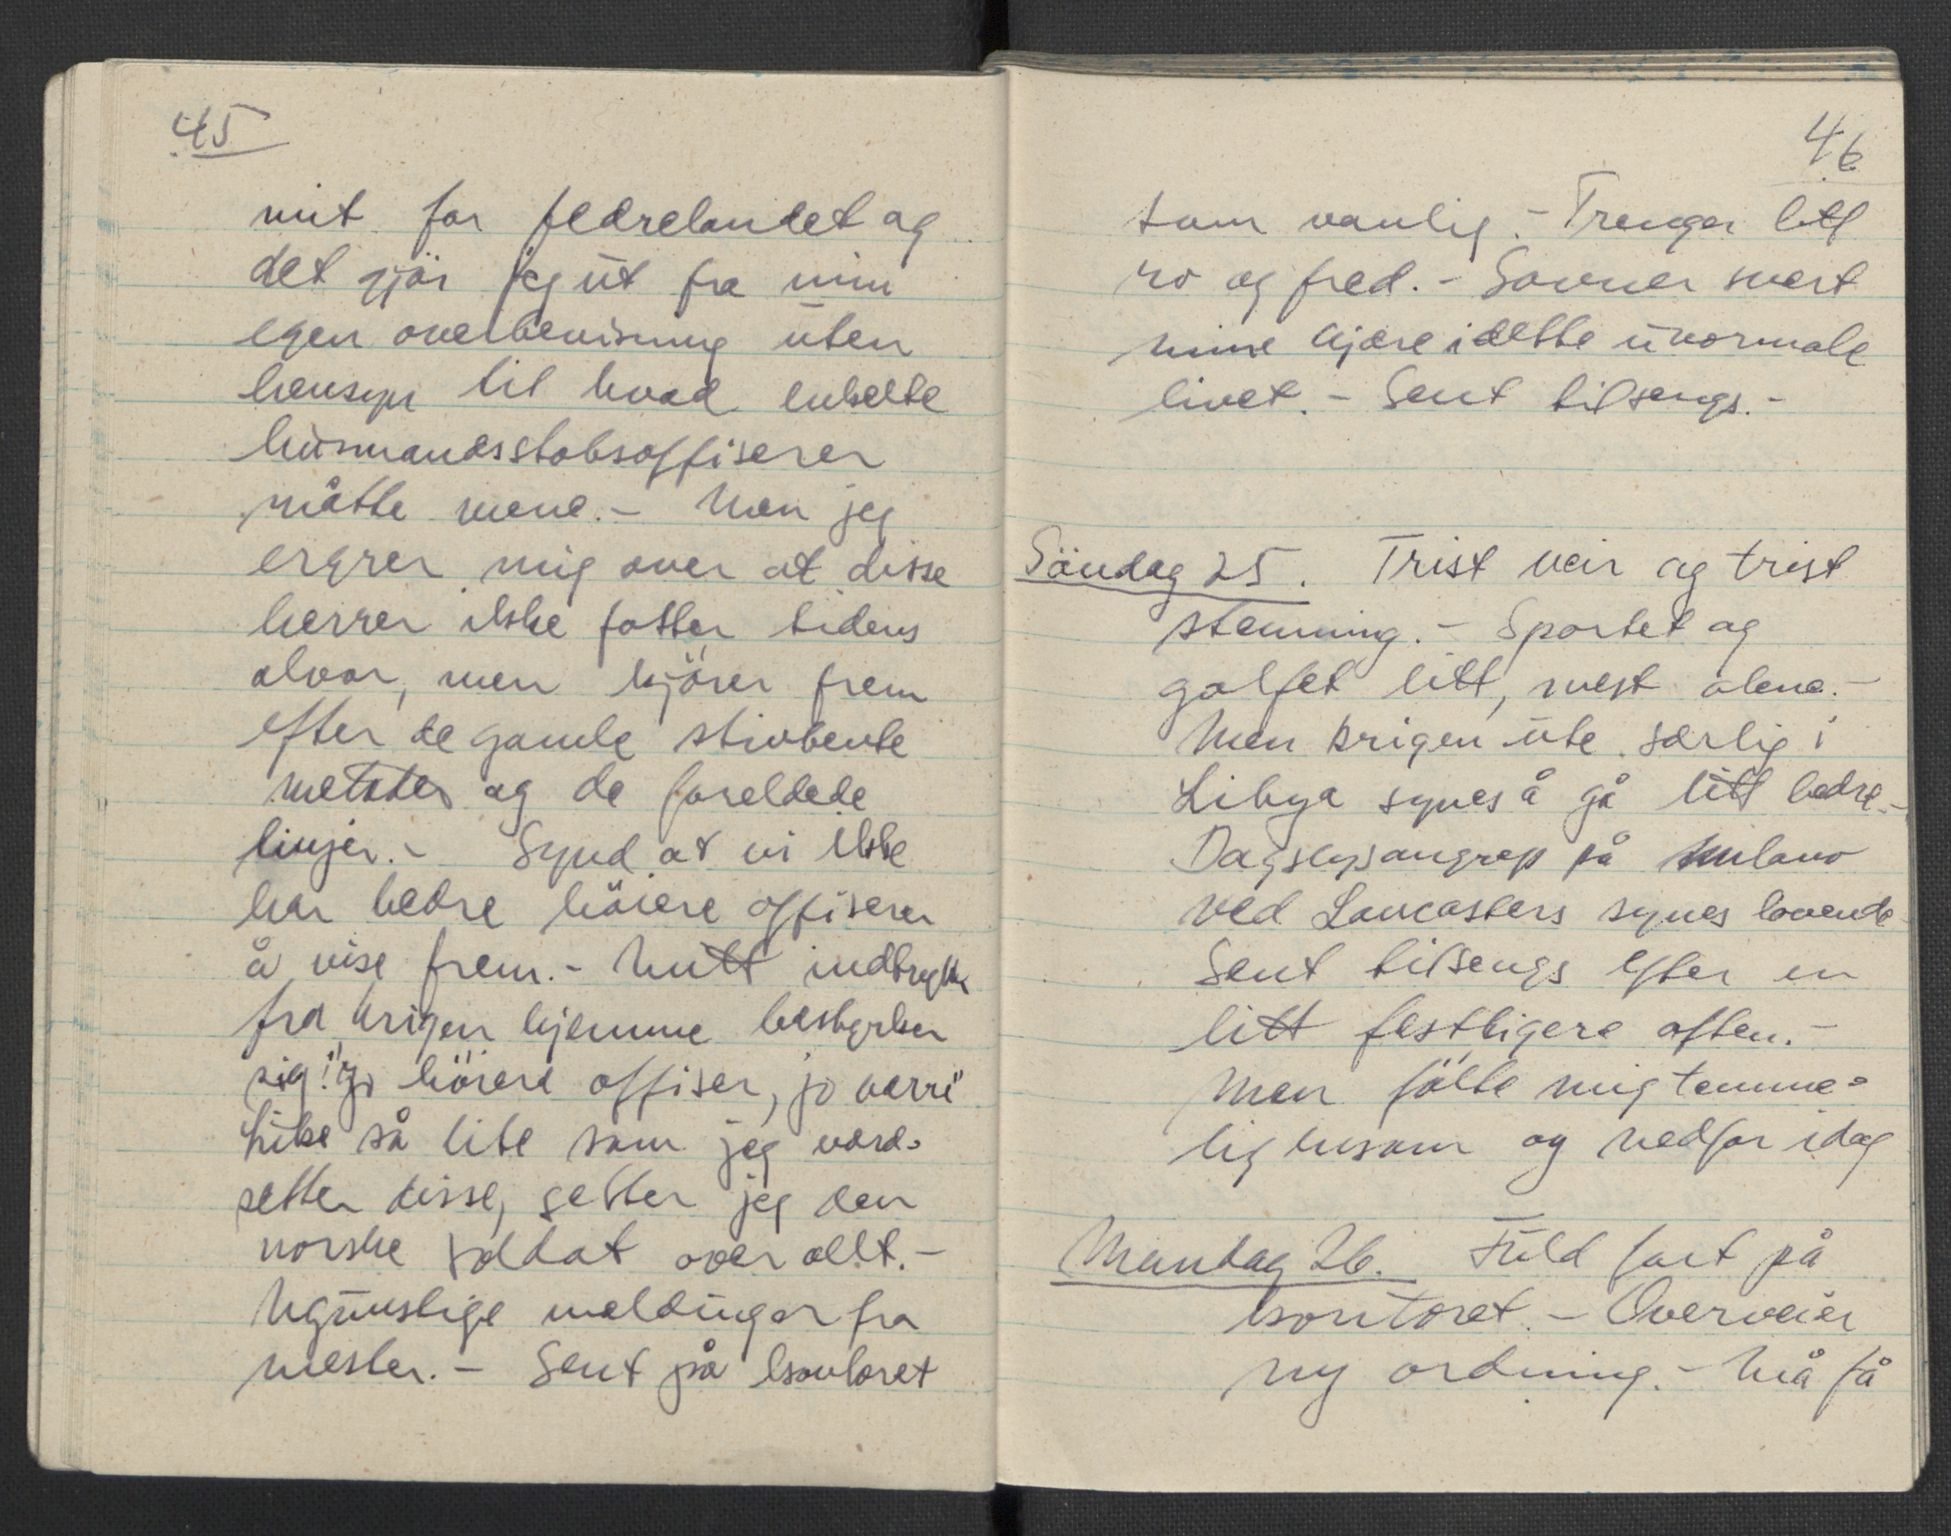 45
mit for fedrelandet og
det gjör jeg ut fra min
egen overbevisning uten
hensyn til hvad enkelte
husmandsstabsoffiserer
måtte mene. - Men jeg
ergrer mig over at disse
herrer ikke fatter tidens
alvor, men kjörer frem
efter de gamle stivbente
metoder og de foreldede
linjer. - Synd at vi ikke
har bedre höiere offiserer
å vise frem. - Mitt indtrykk
fra krigen hjemme bestyrker
sig: "Jo höiere offiser, jo verre"
Like så lite som jeg verd-
setter disse, setter jeg den
norske soldat over allt. -
Ugunstige meldinger fra
vesten. - Sent på kontoret
46
som vanlig. - Trenger litt
ro og fred. - Savner svert
mine kjære i dette unormale
livet. - Sent tilsengs. -
Söndag 25. Trist veir og trist
stemning. - Sportet og
golfet litt, mest alene. -
Men krigen ute særlig i
Libya synes å gå litt bedre. -
Dagslysangrep på Milano
ved Lancasters synes lovende
Sent tilsengs efter en
litt festligere aften. -
Men fölte mig temme=
lig ensom og nedfor idag
Mandag 26. Fuld fart på
kontoret. - Overveier
ny ordning. - Må få